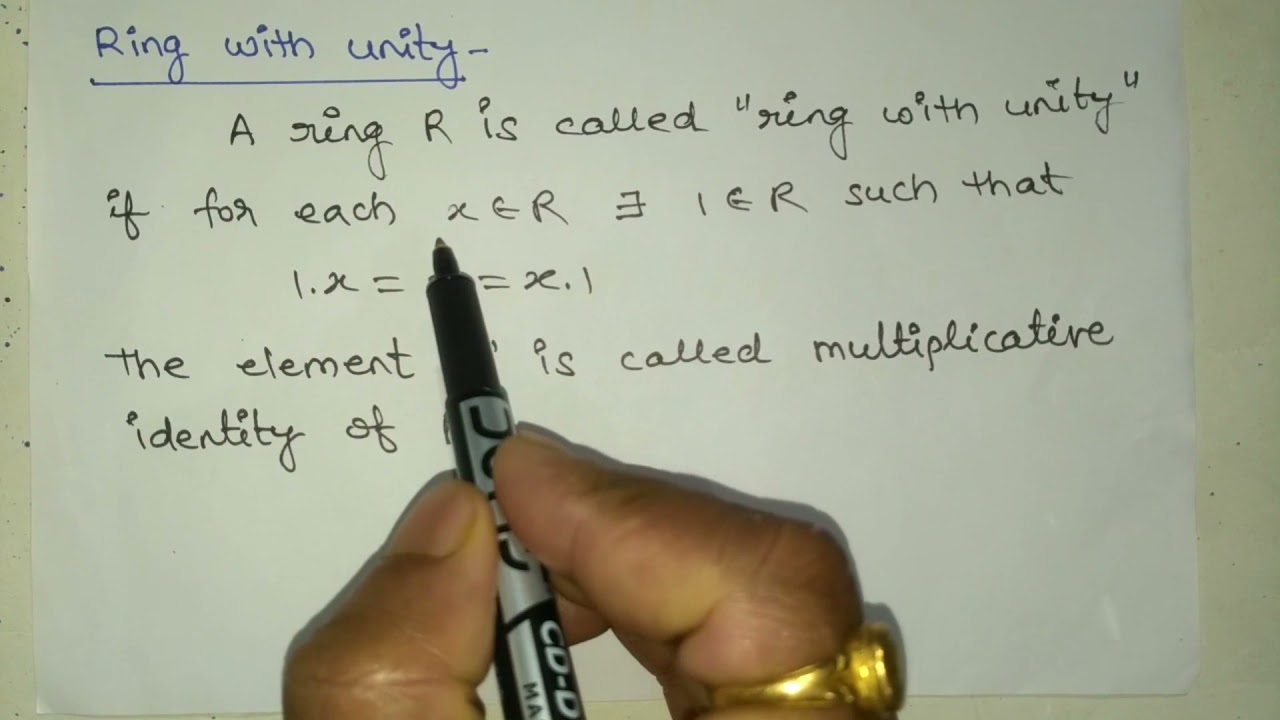 Ring with unity-
A ring R is called "ring with unity"
if for each x ∈ R ∃ 1 ∈ R such that
1.x = = x.1
The element is called multiplicative
identity of
CD-D
MA